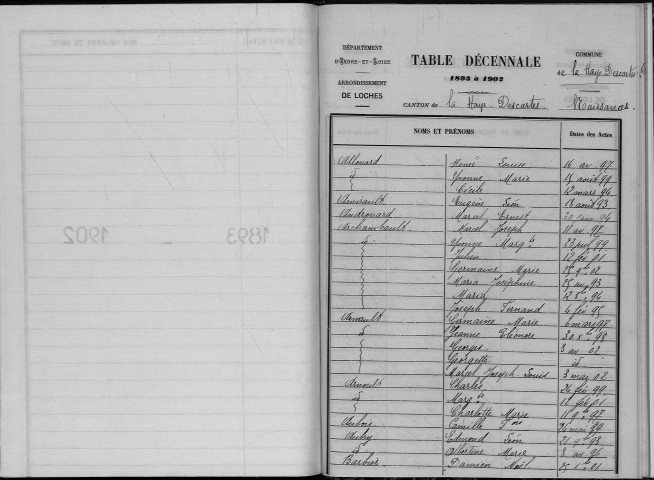 DÉPARTEMENT
D'INDRE-ET-LOIRE
ARRONDISSEMENT
DE LOCHES
TABLE DÉCENNALE
1893 à 1902
CANTON de la Haye Descartes
COMMUNE
de la Haye Descartes
Naissances.
NOMS ET PRÉNOMS
Dates des Actes
Allouard René Louise 16 av 97
id Yvonne Marie 18 août 99
Cécile 12 mars 96
Amirault Eugène Léon 18 août 93
Androuard Marcel Ernest 96
Archambault Marcel Joseph 11 av 97
id Yvonne Margte 99
Julien 12 fév 01
Germaine Marie 25 9bre 02
Maria Joséphine 25 av 93
Maria 12 8bre 94
Joseph Fernand 4 fév 95
Arnault Germaine Marie 6 mars 97
id Jeanne Eléonore 30 Xbre 98
Georges 3 av 02
Georgette id
Marcel Joseph Louis 3 mai 02
Arnoult Charles 24 fév 99
id Margte 12 fév 01
Charlotte Marie 11 9bre 97
Aubois Camille 26 mai 99
Aubry Edmond Léon 21 9bre 93
id Albertine Marie 8 av 96
Barbier Damien Noël 25 Xbre 01
1893 - 1902